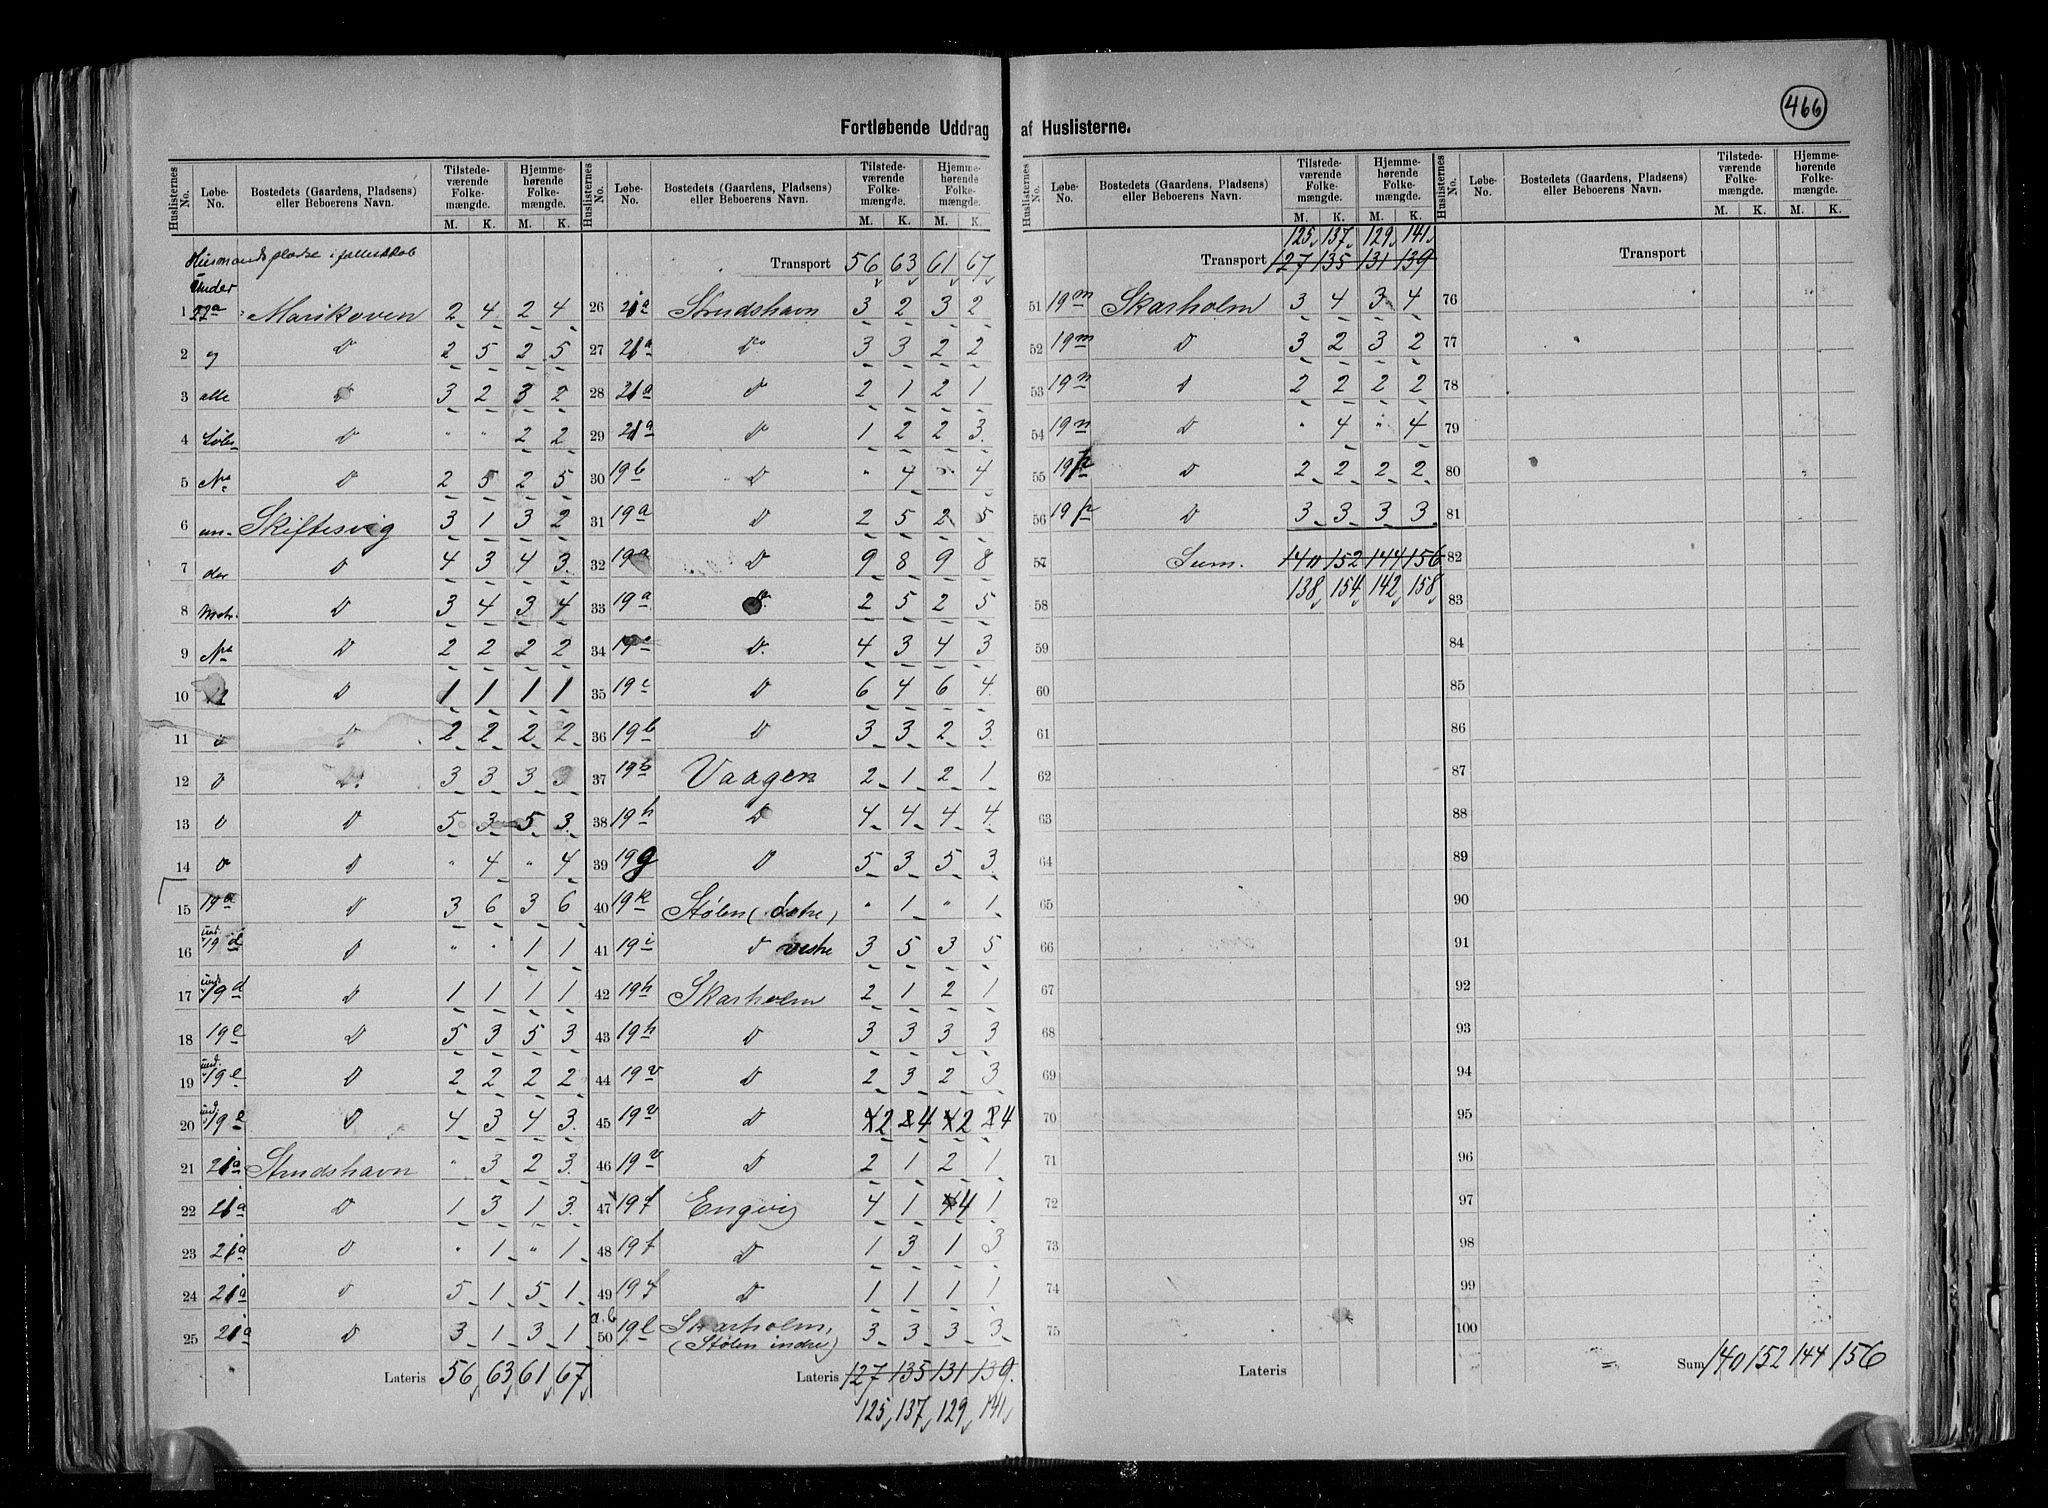 466
Fortløbende Uddrag af Huslisterne.
Huslisternes No. Løbe-No. Bostedets (Gaardens, Pladsens) eller Beboerens Navn. Tilstedeværende Folkemængde. M. K. Hjemmehørende Folkemængde. M. K.
Husmandspladse i fællesskab
under
1 22a Marikoven 2 4 2 4
2 og D 2 5 2 5
3 alle D 3 2 3 2
4 Løbe- D " " 2 2
5 No D 2 5 2 5
6 un- Skiftesvig 3 1 3 2
7 der D 4 3 4 3
8 Matr. D 3 4 3 4
9 No D 2 2 2 2
10 D 1 1 1 1
11 D 2 2 2 2
12 D D 3 3 3 3
13 D D 5 3 5 3
14 D D " 4 " 4
15 19a D 3 6 3 6
16 und. 19d D " " 1 1
17 und. 19d D 1 1 1 1
18 19e D 5 3 5 3
19 und. 19e D 2 2 2 2
20 und. 19e D 4 3 4 3
21 21a Strudshavn " 3 2 3
22 21a D 1 3 1 3
23 21a D " 1 " 1
24 21a D 5 1 5 1
25 21a D 3 1 3 1
Lateris 56 63 61 67
Huslisternes No. Løbe-No. Bostedets (Gaardens, Pladsens) eller Beboerens Navn. Tilstedeværende Folkemængde. M. K. Hjemmehørende Folkemængde. M. K.
Transport 56 63 61 67
26 21a Strudshavn 3 2 3 2
27 21a Do 3 3 2 2
28 21a D 2 1 2 1
29 21a D 1 2 2 3
30 19b D " 4 " 4
31 19a D 2 5 2 5
32 19a D 9 8 9 8
33 19a Do 2 5 2 5
34 19 D. 4 3 4 3
35 19c D 6 4 6 4
36 19b D 3 3 2 3
37 19 Vaagen 2 1 2 1
38 19h D 4 4 4 4
39 19g D 5 3 5 3
40 19k Stølen (østre) " 1 " 1
41 19i D vestre 3 5 3 5
42 19h Skarholm 2 1 2 1
43 19h D 3 3 3 3
44 19v D 2 3 2 3
45 19v D 2 4 2 4
46 19v D 2 1 2 1
47 19f Engvig 4 1 4 1
48 19f D 1 3 1 3
49 19f D 1 1 1 1
a.b.
50 19l Skarholm, 3 3 3 3
(Stølen indre)
Lateris 127 135 131 139
125 137 129 141
Huslisternes No. Løbe-No. Bostedets (Gaardens, Pladsens) eller Beboerens Navn. Tilstedeværende Folkemængde. M. K. Hjemmehørende Folkemængde. M. K.
125 137 129 141
Transport 127 135 131 139
51 19m Skarholm 3 4 3 4
52 19m D 3 2 3 2
53 19n D 2 2 2 2
54 19n D " 4 " 4
55 19p D 2 2 2 2
56 19p D 3 3 3 3
57 Sum. 140 152 144 156
58 138 154 142 158
59
60
61
62
63
64
65
66
67
68
69
70
71
72
73
74
75
Lateris
Huslisternes No. Løbe-No. Bostedets (Gaardens, Pladsens) eller Beboerens Navn. Tilstedeværende Folkemængde. M. K. Hjemmehørende Folkemængde. M. K.
Transport
76
77
78
79
80
81
82
83
84
85
86
87
88
89
90
91
92
93
94
95
96
97
98
99
100
Sum 140 152 144 156